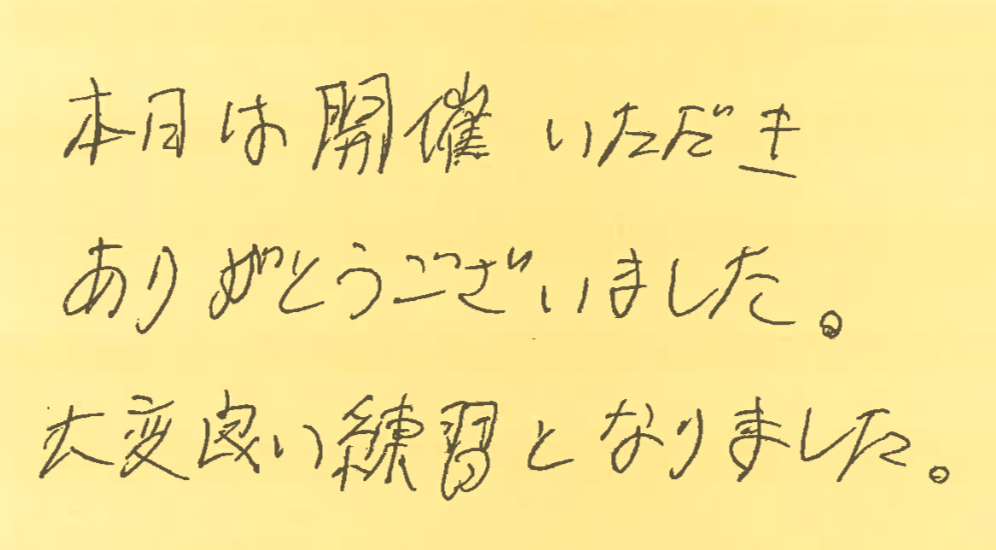 本日は開催いただき
ありがとうございました。
大変良い練習となりました。